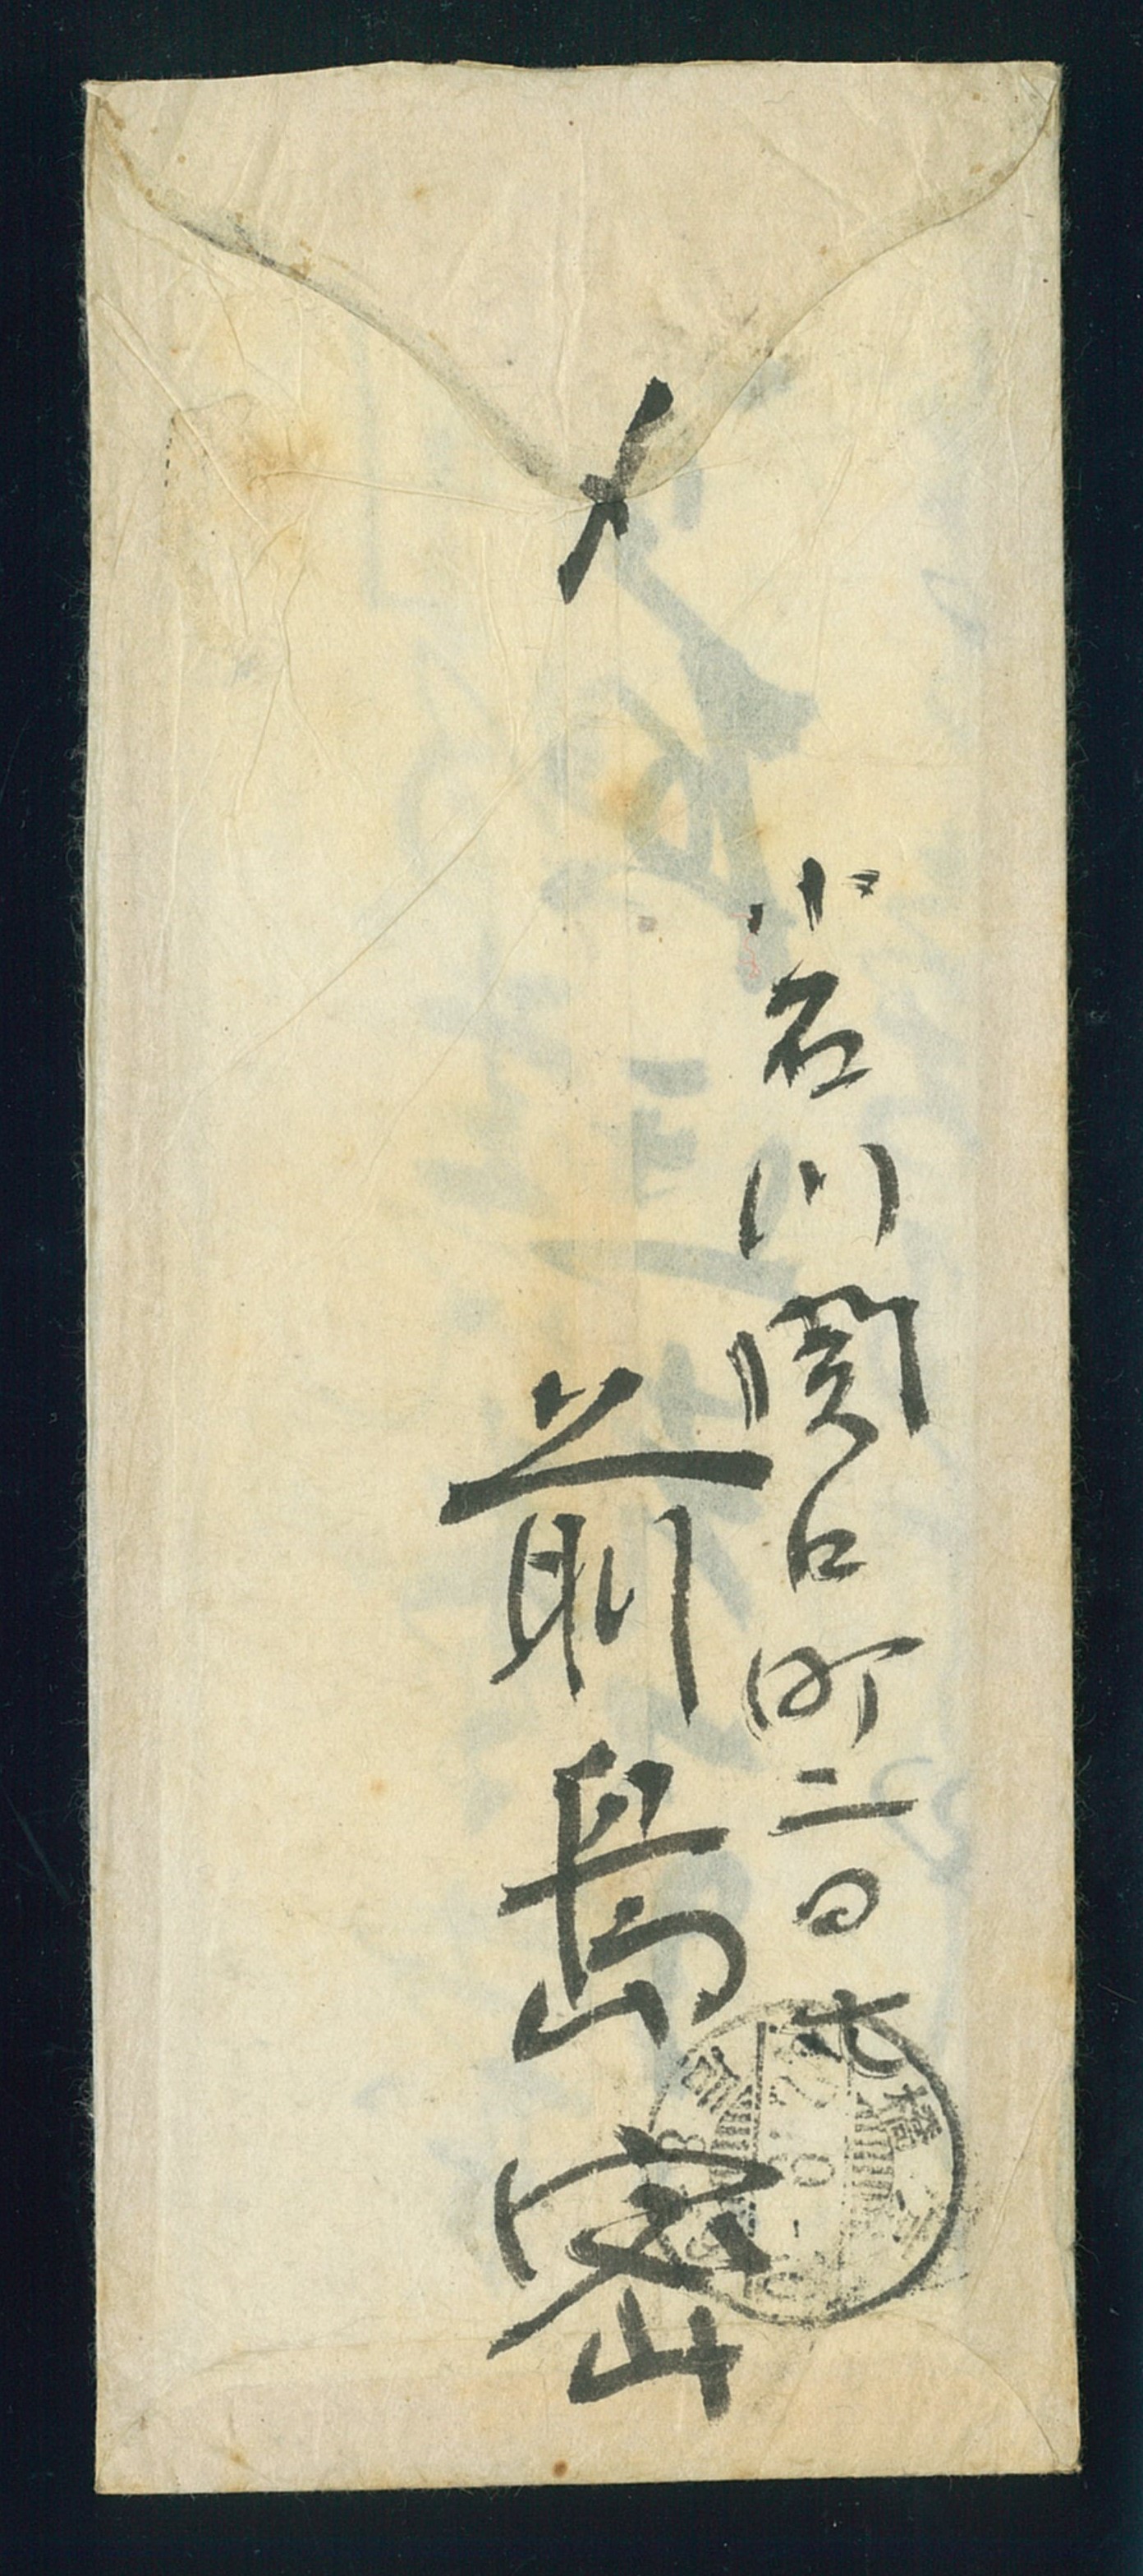 〆
小石川関口町二日七
前島密